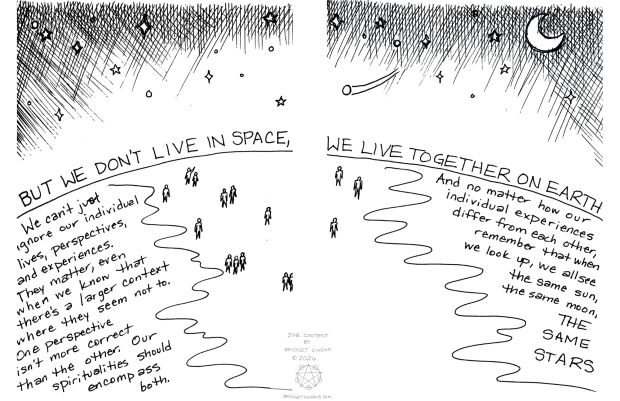 BUT WE DON'T LIVE IN SPACE,
We can't just
ignore our individual
lives, perspectives,
and experiences.
They matter, even
when we know that
there's a larger context
where they seem not to.
One perspective
isn't more correct
than the other. Our
spiritualities should
encompass
both.
ZINE CONTENT
BY
BRIDGET OWENS
© 2026
BRIDGETOWENS.COM
WE LIVE TOGETHER ON EARTH
And no matter how our
individual experiences
differ from each other,
remember that when
we look up, we all see
the same sun,
the same moon,
THE
SAME
STARS